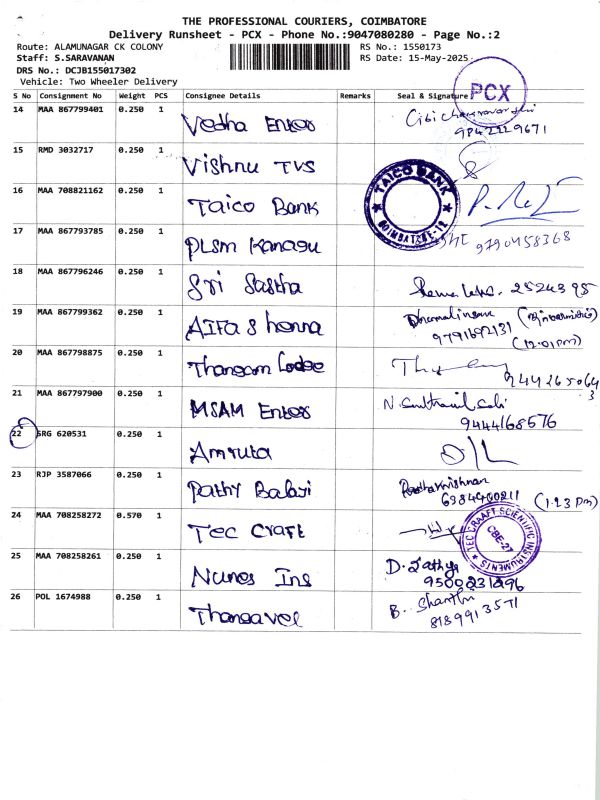 THE PROFESSIONAL COURIERS, COIMBATORE
Delivery Runsheet - PCX - Phone No.:9047080280 - Page No.:2
Route: ALAMUNAGAR CK COLONY RS No.: 1550173
Staff: S.SARAVANAN RS Date: 15-May-2025
DRS No.: DCJB155017302
Vehicle: Two Wheeler Delivery
S No Consignment No Weight PCS Consignee Details Remarks Seal & Signature
PCX
14 MAA 867799401 0.250 1 Vedha Enter
9842229671
15 RMD 3032717 0.250 1 Vishnu TVS
16 MAA 708821162 0.250 1 Taico Bank
TAICO BANK
COIMBATORE-12
17 MAA 867793785 0.250 1 PLSM Kanagu
9790458368
18 MAA 867796246 0.250 1 Sri Sastha
2524395
19 MAA 867799362 0.250 1
Dharmalingam
9791692131
(12:01 pm)
20 MAA 867798875 0.250 1 Thangam Lodge
21 MAA 867797900 0.250 1 MSAM Enter
9444168576
22 SRG 620531 0.250 1 Amruta
23 RJP 3587066 0.250 1 Pathy Balaji
Radhakrishnan
(1:23 Pm)
24 MAA 708258272 0.570 1 Tec Craft
TEC CRAAFT SCIENTIFIC INSTRUMENTS
CBE-27
25 MAA 708258261 0.250 1
D. Sathya
9500231296
26 POL 1674988 0.250 1 Thangavel
B. Shanthi
8189913571